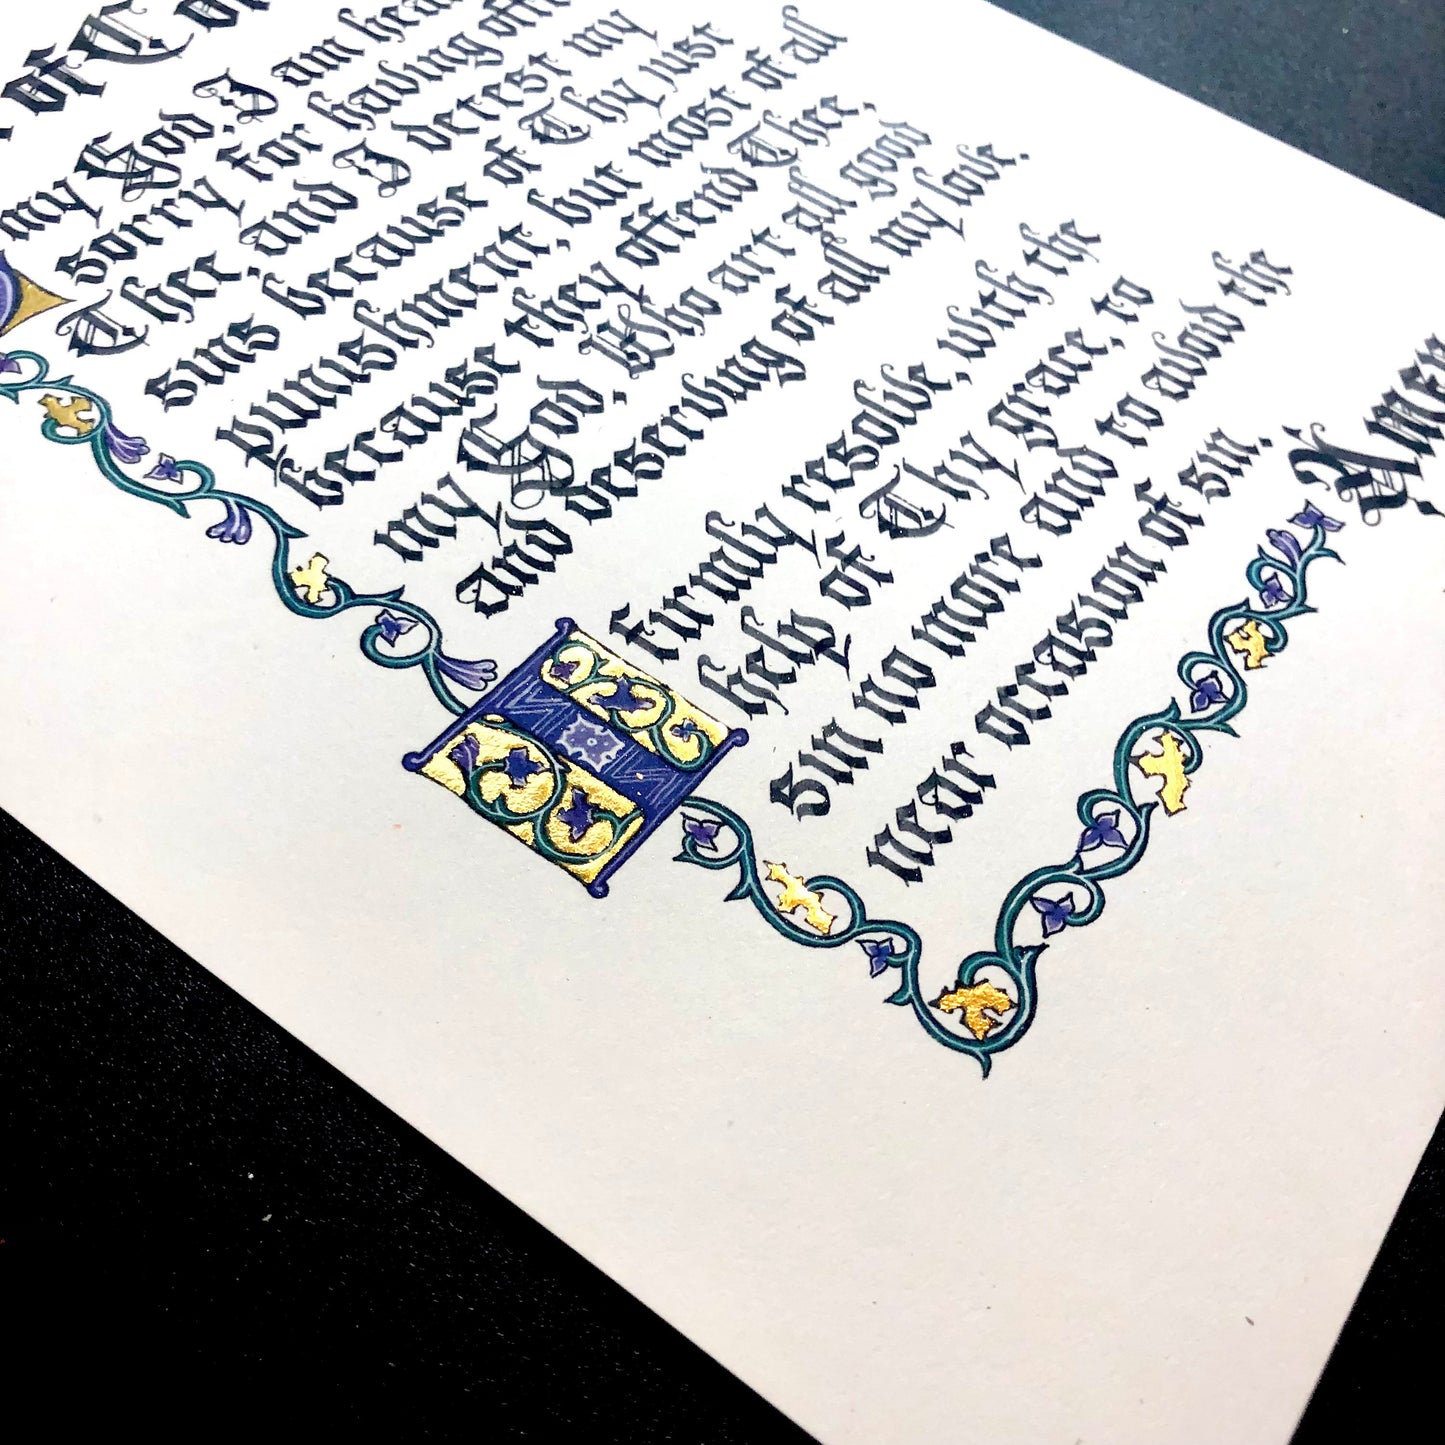 of
my God, I am
sorry for having
Thee, and I detest my
sins because of Thy just
punishment, but most of all
because they offend Thee,
my God, Who art all good
and deserving of all my love.
I firmly resolve, with the
help of Thy grace, to
sin no more and to avoid the
near occasion of sin.
Amen